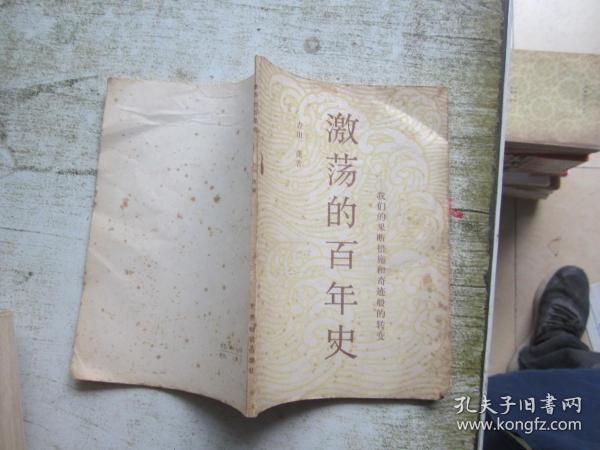 激荡的百年史
我们的果断措施和奇迹般的转变
吉田 茂著
孔夫子旧书网
www.kongfz.com